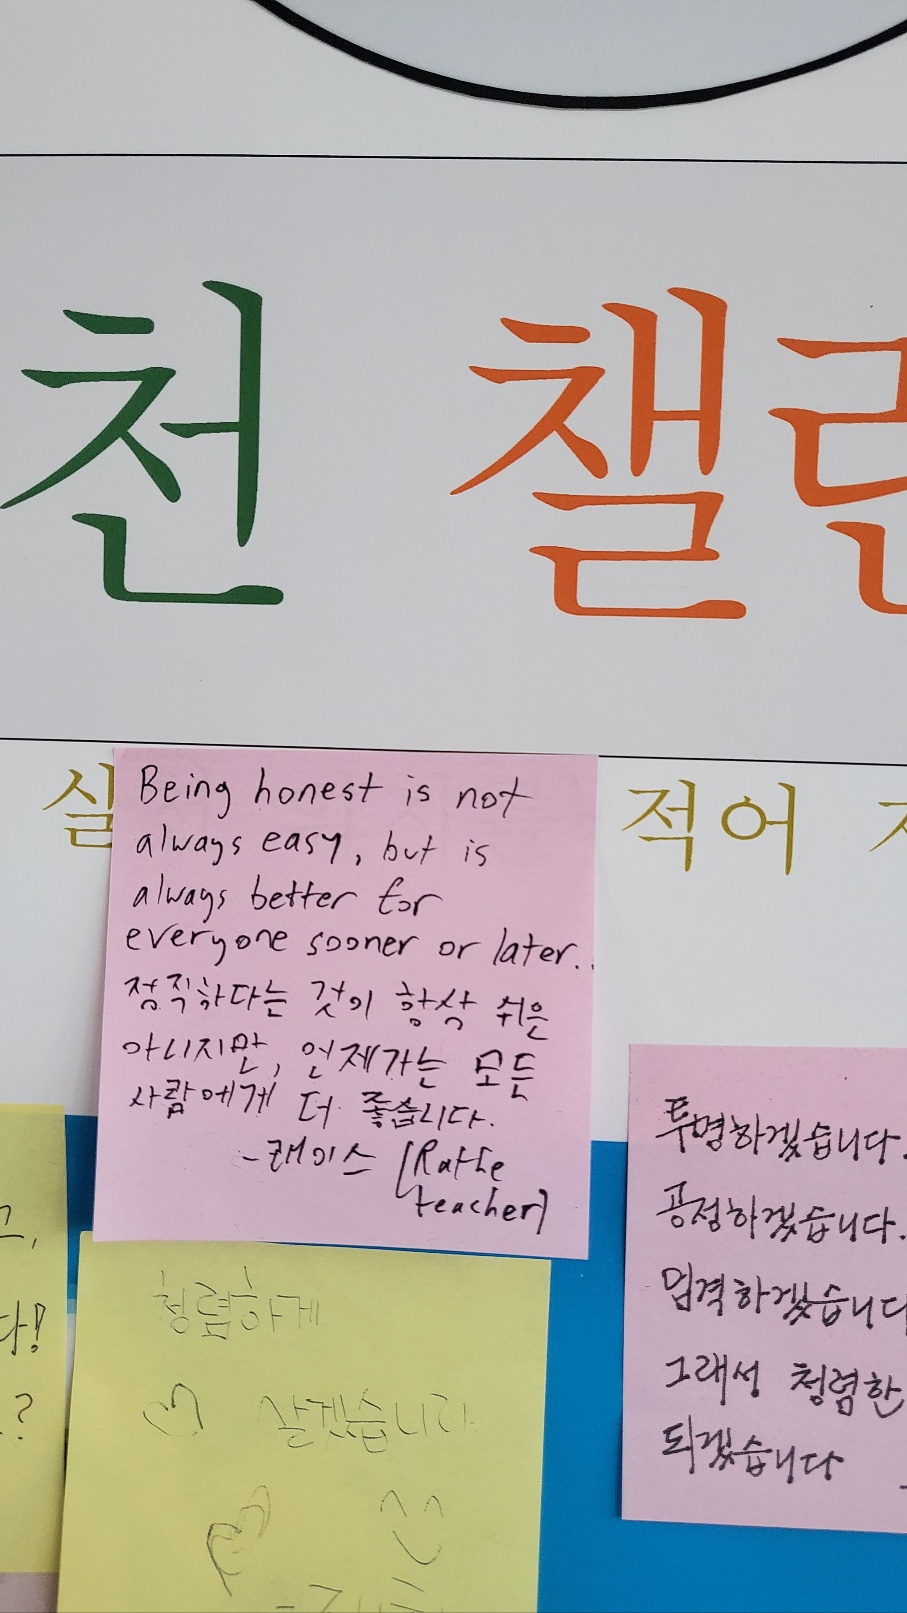 천 챌린
실
적어
Being honest is not
always easy, but is
always better for
everyone sooner or later..
정직하다는 것이 항상 쉬운
아니지만, 언제가는 모든
사람에게 더 좋습니다.
투명하겠습니다.
공정하겠습니다.
엄격하겠습니다
그래서 청렴한
되겠습니다
다!
?
청렴하게
살겠습니다
teacher)